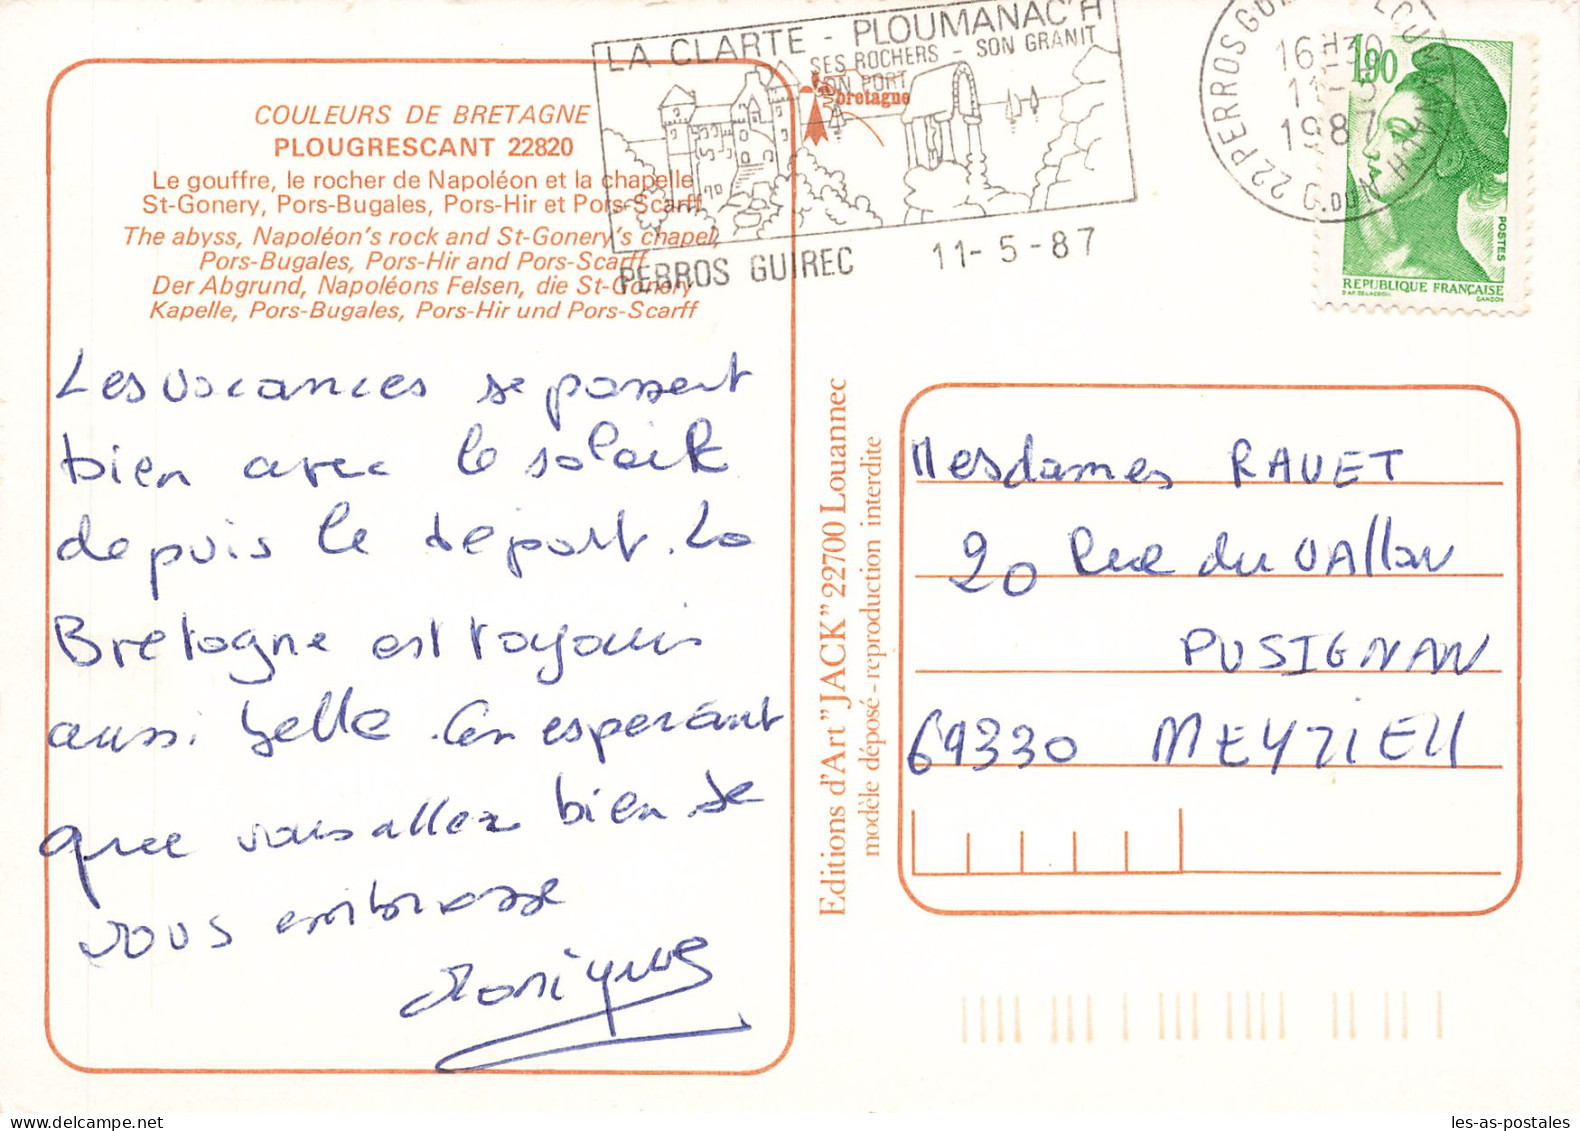 COULEURS DE BRETAGNE
PLOUGRESCANT 22820
Le gouffre, le rocher de Napoléon et la chapelle
St-Gonery, Pors-Bugales, Pors-Hir et Pors-Scarff
The abyss, Napoléon's rock and St-Gonery's chapel,
Pors-Bugales, Pors-Hir and Pors-Scarff
Der Abgrund, Napoléons Felsen, die St-Gonery
Kapelle, Pors-Bugales, Pors-Hir und Pors-Scarff
LA CLARTE - PLOUMANAC'H
SES ROCHERS - SON GRANIT
SON PORT
bretagne
PERROS GUIREC 11-5-87
22 PERROS GUIREC PLOUMANACH
C.DU N.
16H30
11-5
1987
1,90
POSTES
REPUBLIQUE FRANÇAISE
D'AP. DELACROIX GANDON
Les vacances se passent
bien avec le soleil
depuis le départ. La
Bretagne est toujours
aussi belle. En espérant
que vous allez bien je
vous embrasse
Monique
Editions d'Art "JACK" 22700 Louannec
modèle déposé - reproduction interdite
Mesdames RAVET
20 Rue du VALLON
PUSIGNAN
69330 MEYZIEU
les-as-postales